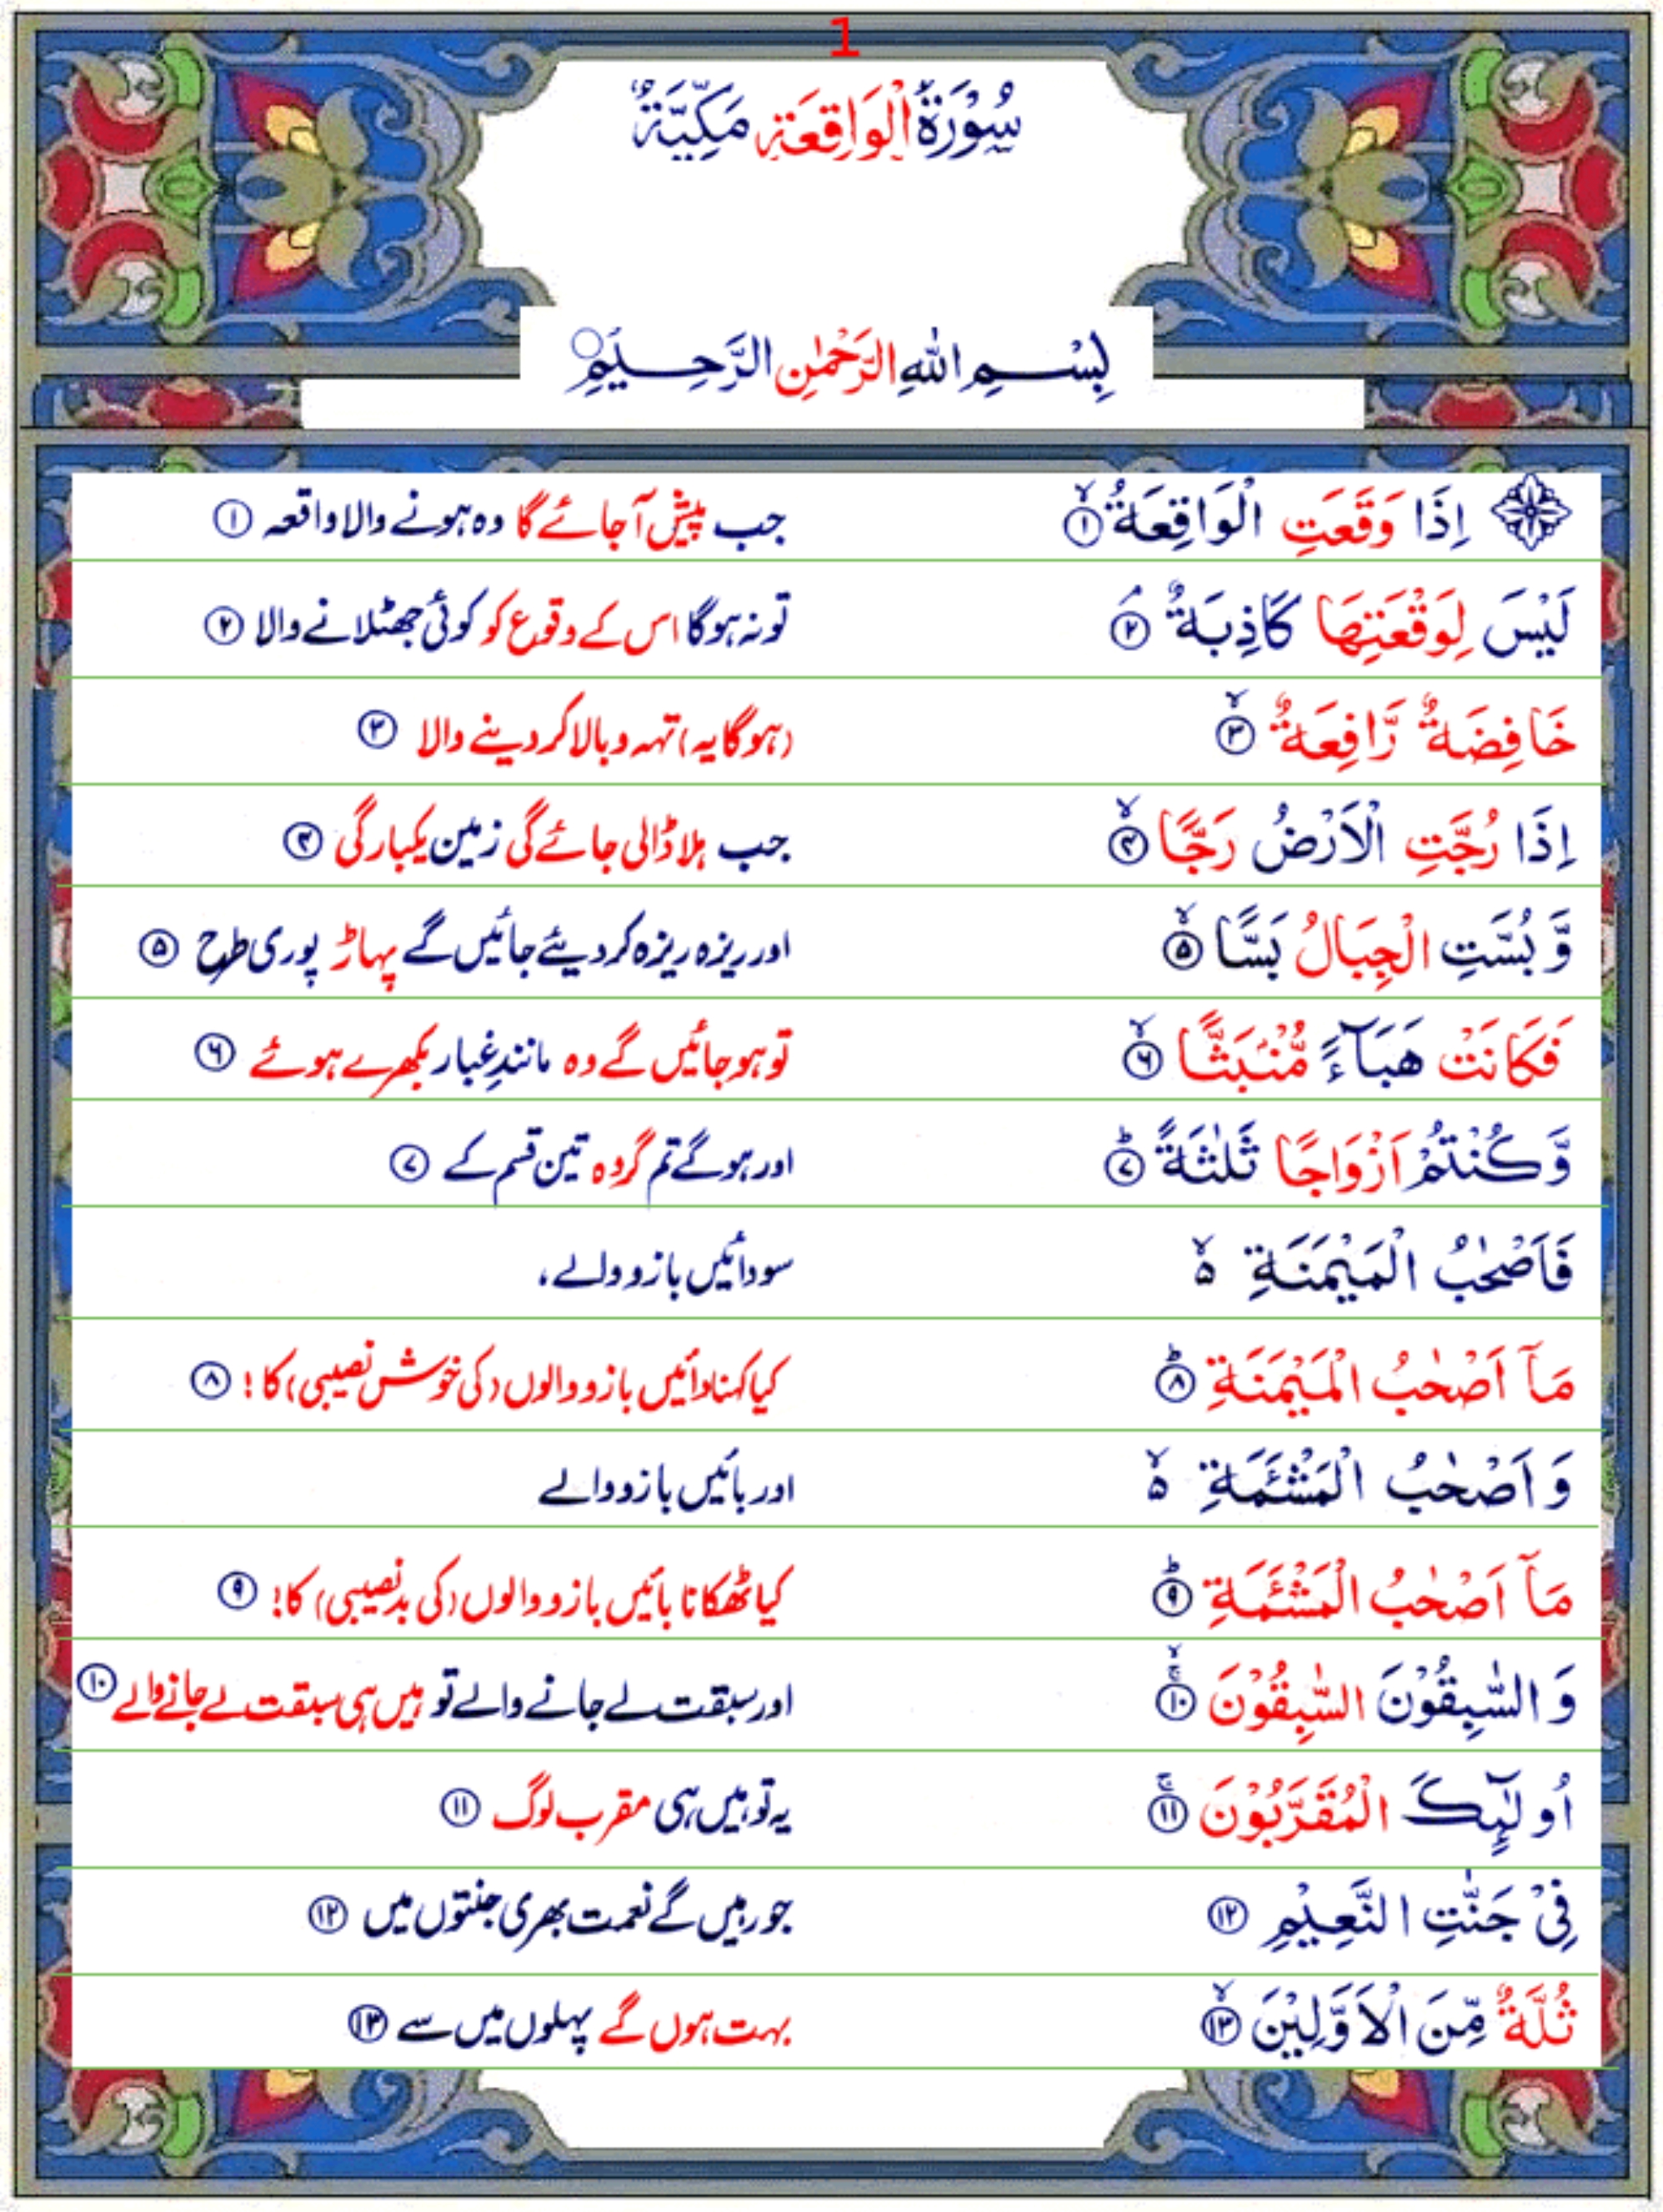 1
سُوْرَةُ الْوَاقِعَةِ مَكِّيَّةٌ
بِسْمِ اللّٰهِ الرَّحْمٰنِ الرَّحِيْمِ
اِذَا وَقَعَتِ الْوَاقِعَةُ ۙ‏ ۱ جب پیش آجائے گا وہ ہونے والا واقعہ ۱
لَيْسَ لِوَقْعَتِهَا كَاذِبَةٌ ۘ‏ ۲ تو نہ ہوگا اس کے وقوع کو کوئی جھٹلانے والا ۲
خَافِضَةٌ رَّافِعَةٌ ۙ‏ ۳ (ہوگا یہ) تہہ و بالا کر دینے والا ۳
اِذَا رُجَّتِ الْاَرْضُ رَجًّا ۙ‏ ۴ جب ہلا ڈالی جائے گی زمین یکبارگی ۴
وَّ بُسَّتِ الْجِبَالُ بَسًّا ۙ‏ ۵ اور ریزہ ریزہ کر دیئے جائیں گے پہاڑ پوری طرح ۵
فَكَانَتْ هَبَآءً مُّنْۢبَثًّا ۙ‏ ۶ تو ہو جائیں گے وہ مانندِ غبار بکھرے ہوئے ۶
وَّ كُنْتُمْ اَزْوَاجًا ثَلٰثَةً ؕ‏ ۷ اور ہوگے تم گروہ تین قسم کے ۷
فَاَصْحٰبُ الْمَيْمَنَةِ ۙ۵ سو دائیں بازو والے،
مَاۤ اَصْحٰبُ الْمَيْمَنَةِ ؕ‏ ۸ کیا کہنا دائیں بازو والوں (کی خوش نصیبی) کا! ۸
وَ اَصْحٰبُ الْمَشْـَٔمَةِ ۙ۵ اور بائیں بازو والے
مَاۤ اَصْحٰبُ الْمَشْـَٔمَةِ ؕ‏ ۹ کیا ٹھکانا بائیں بازو والوں (کی بدنصیبی) کا! ۹
وَ السّٰبِقُوْنَ السّٰبِقُوْنَ ۚۙ‏ ۱۰ اور سبقت لے جانے والے تو ہیں ہی سبقت لے جانے والے ۱۰
اُولٰٓئِكَ الْمُقَرَّبُوْنَ ۚ‏ ۱۱ یہ تو ہیں ہی مقرب لوگ ۱۱
فِىْ جَنّٰتِ النَّعِيْمِ ۱۲ جو رہیں گے نعمت بھری جنتوں میں ۱۲
ثُلَّةٌ مِّنَ الْاَوَّلِيْنَ ۙ‏ ۱۳ بہت ہوں گے پہلوں میں سے ۱۳